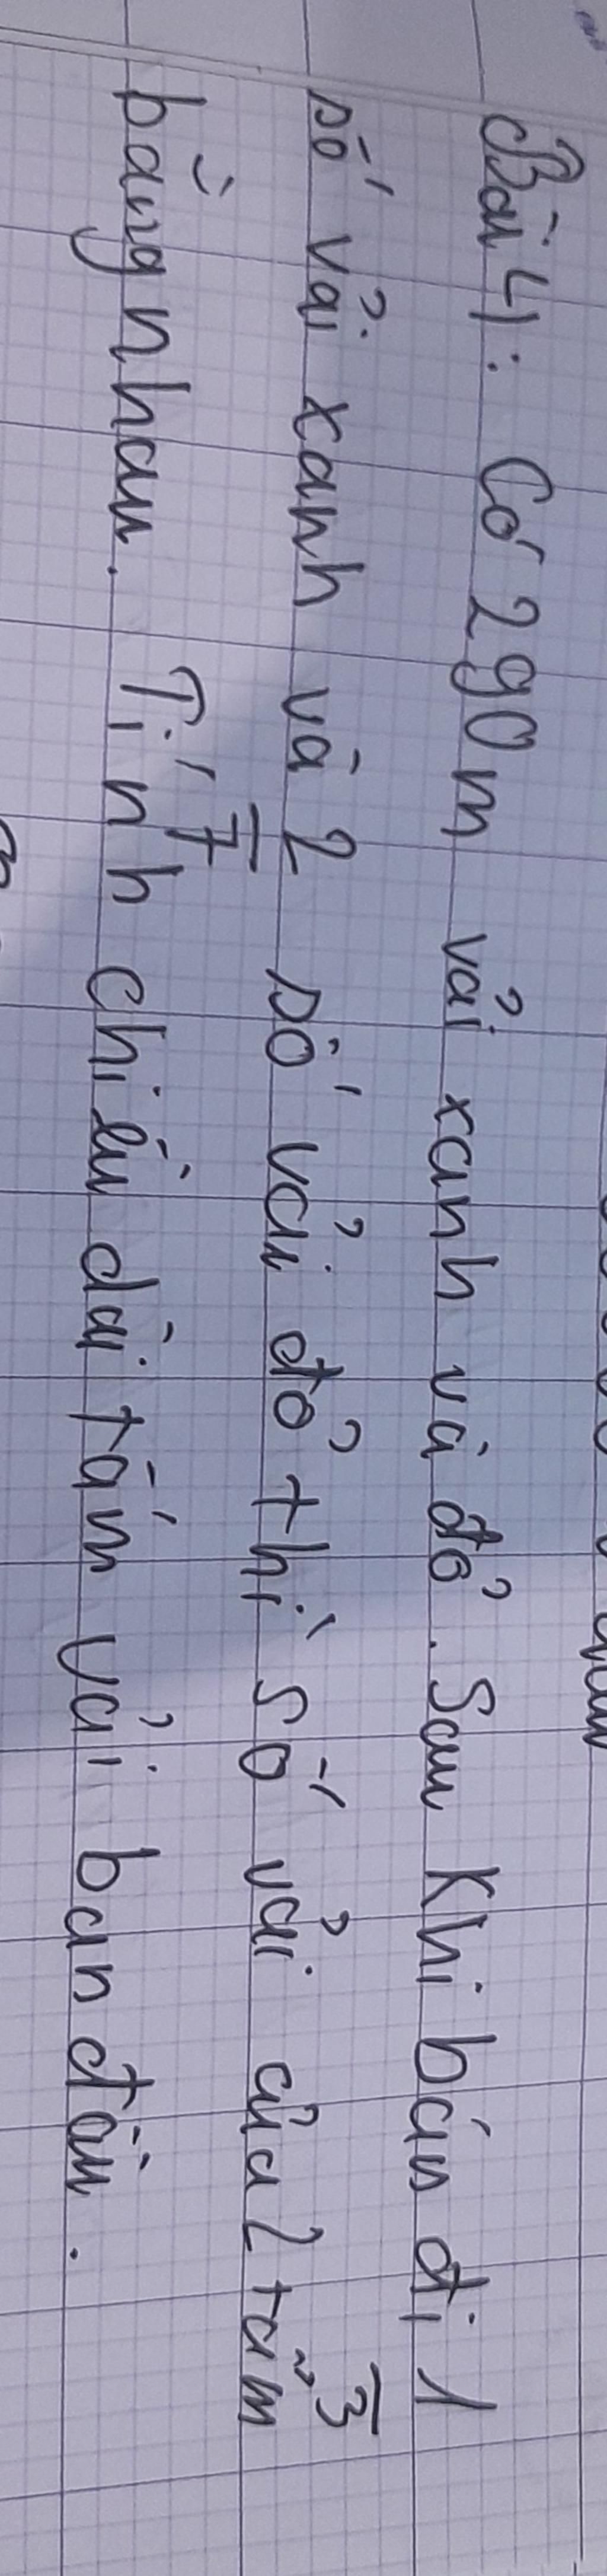 Bài 4: Có 290m vải xanh và đỏ. Sau khi bán đi 1/3
số vải xanh và 2/7 số vải đỏ thì số vải của 2 tấm
bằng nhau. Tính chiều dài tấm vải ban đầu.